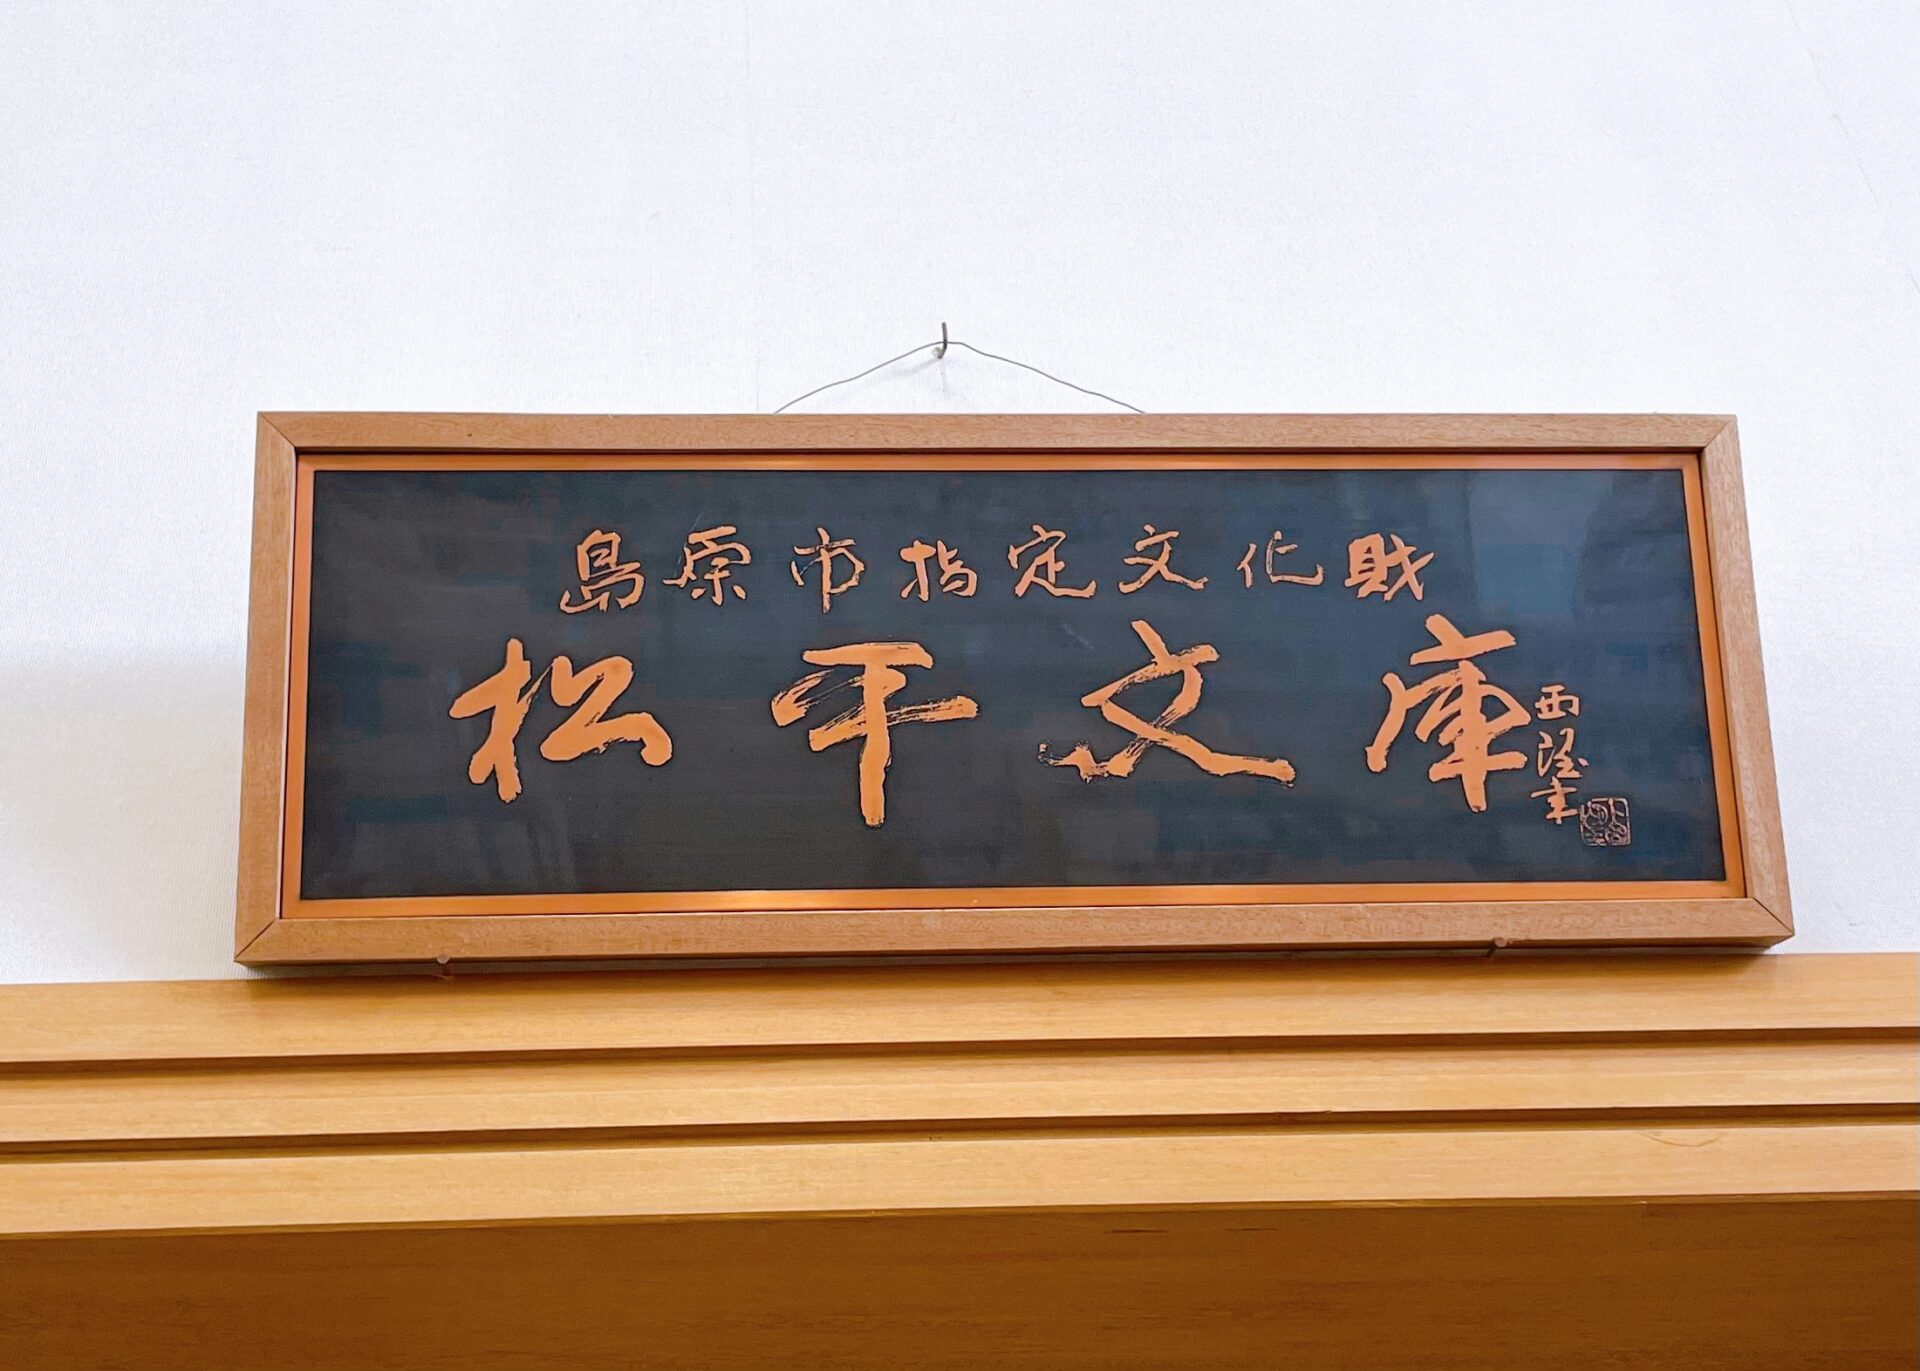 島原市指定文化財
松平文庫